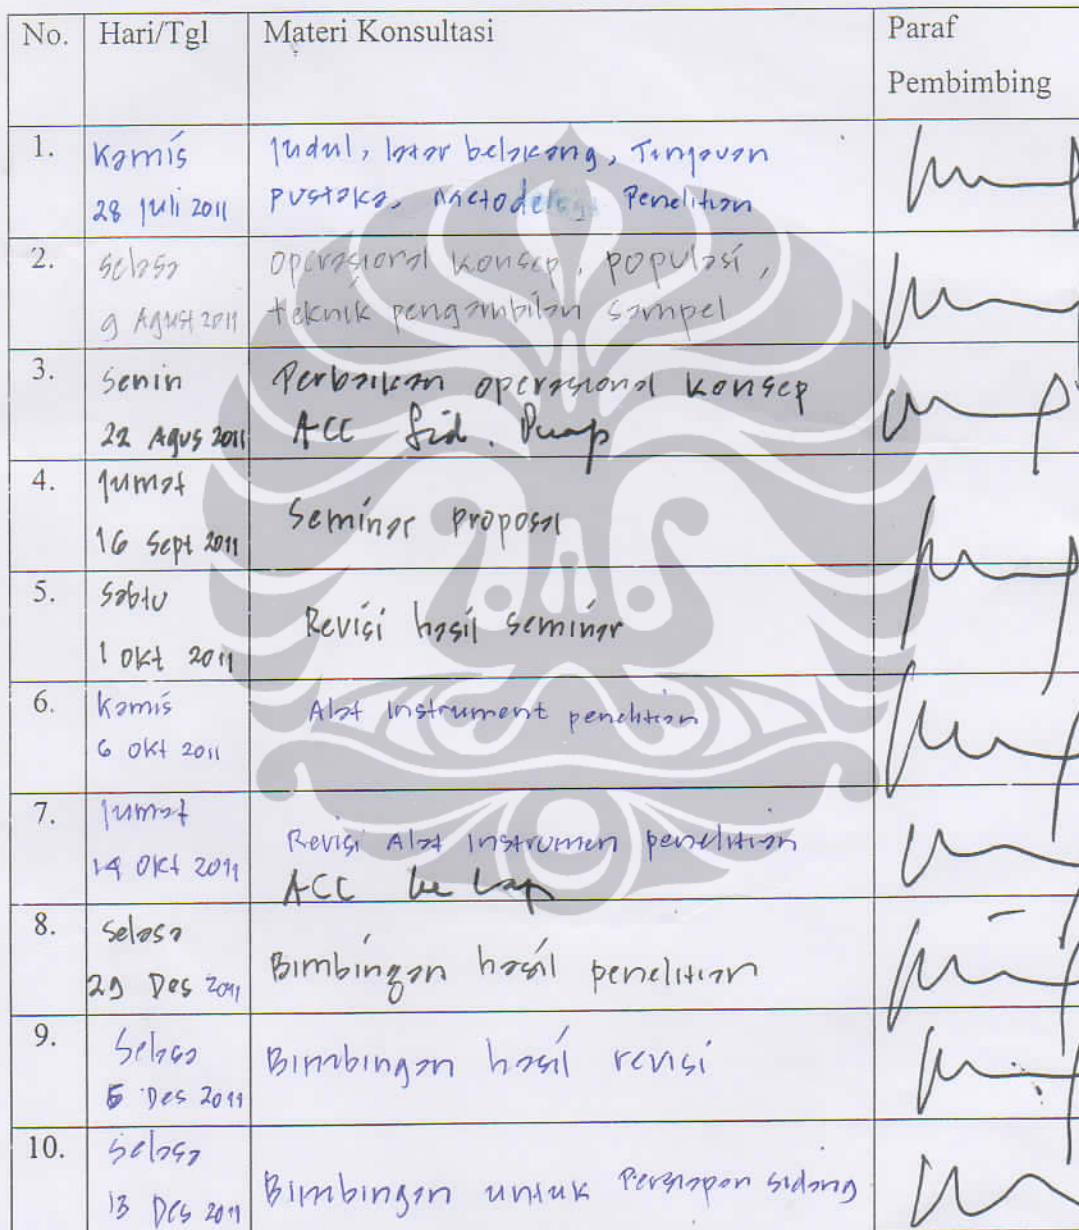 No. Hari/Tgl Materi Konsultasi Paraf
Pembimbing
1. Kamis Judul, latar belakang, Tinjauan
28 Juli 2011 pustaka, Metodelogi Penelitian
2. Selasa operasional konsep, populasi,
9 Agust 2011 teknik pengambilan sampel
3. Senin Perbaikan operasional konsep
22 Agus 2011 ACC
4. Jumat
16 Sept 2011 Seminar proposal
5. Sabtu
1 Okt 2011 Revisi hasil seminar
6. Kamis Alat instrument penelitian
6 Okt 2011
7. Jumat
14 Okt 2011 Revisi Alat instrumen penelitian
ACC ke Lap
8. Selasa
29 Des 2011 Bimbingan hasil penelitian
9. Selasa Bimbingan hasil revisi
Des 2011
10. Selasa
13 Des 2011 Bimbingan untuk Persiapan sidang